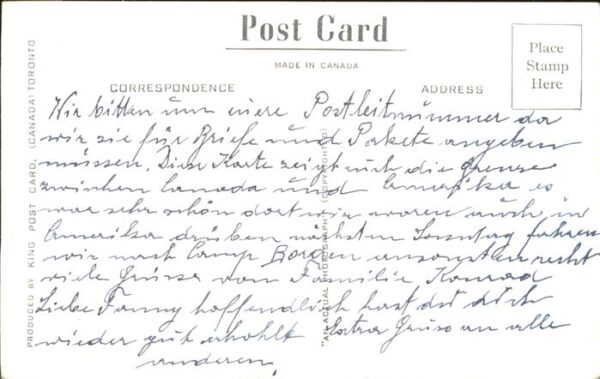 Post Card
MADE IN CANADA
Place
Stamp
Here
CORRESPONDENCE
ADDRESS
Wir bitten um eiere Postleitnummer da
wir sie für Briefe und Pakete angeben
müssen. Diese Karte zeigt euch die Grenze
zwischen Canada und Amerika es
war sehr schön dort wir waren auch in
Amerika drüben nächsten Sonntag fahren
wir nach Camp Borden ansonsten recht
viele Grüsse von Familie Konrad
Liebe Fanny hoffendlich hast du dich
wieder gut erhohlt Extra Grüss an alle
anderen.
PRODUCED BY KING POST CARD, (CANADA) TORONTO
"AN ACTUAL PHOTOGRAPH" (COPYRIGHTED)